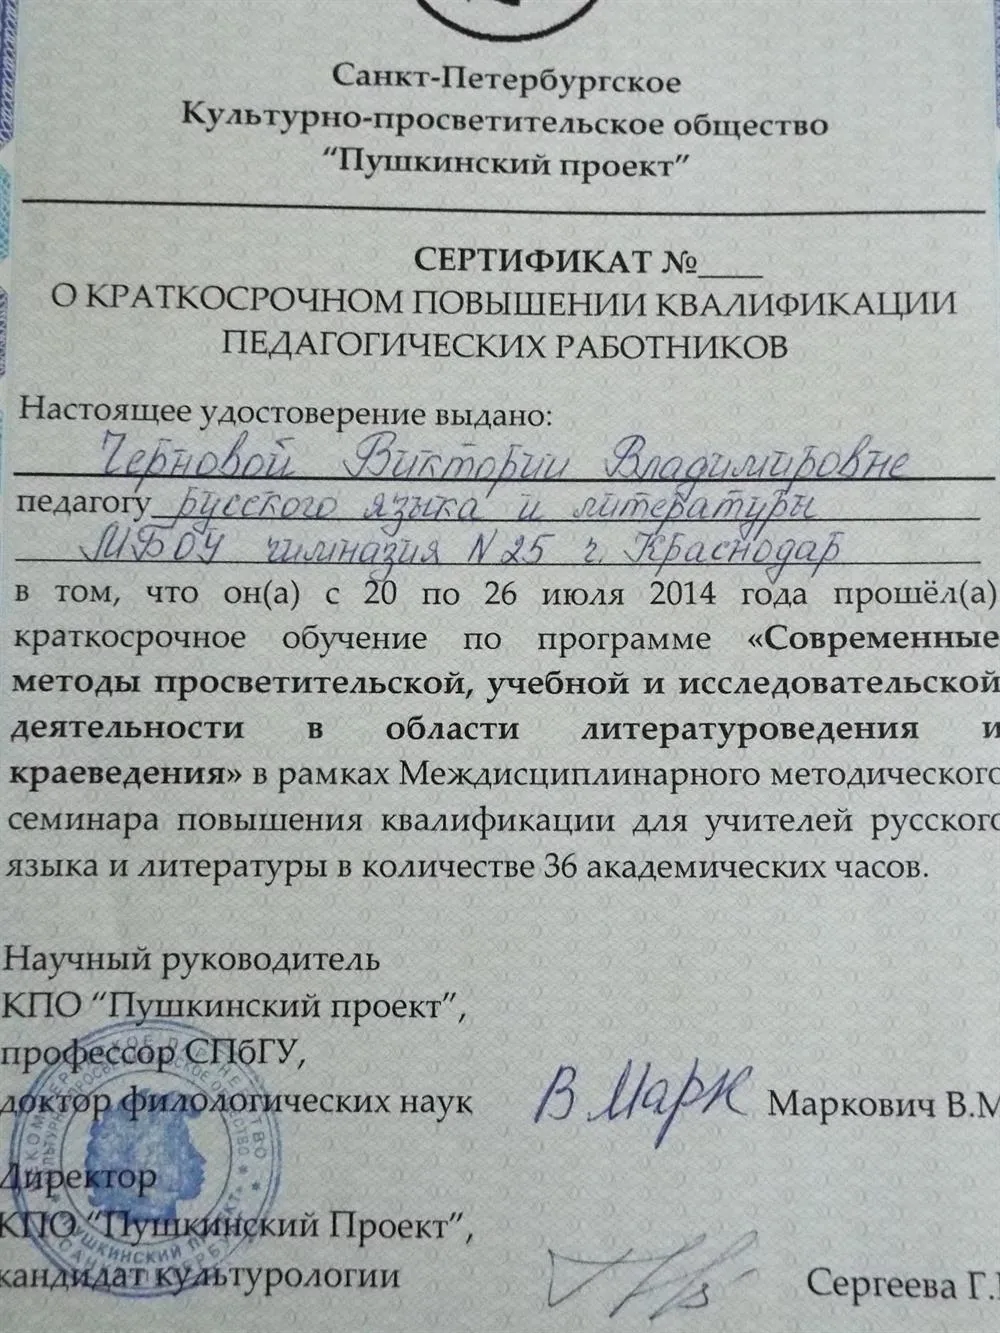 Санкт-Петербургское
Культурно-просветительское общество
“Пушкинский проект”
СЕРТИФИКАТ №____
О КРАТКОСРОЧНОМ ПОВЫШЕНИИ КВАЛИФИКАЦИИ
ПЕДАГОГИЧЕСКИХ РАБОТНИКОВ
Настоящее удостоверение выдано:
Черновой Виктории Владимировне
педагогу русского языка и литературы
МБОУ гимназия N 25 г. Краснодар
в том, что он(а) с 20 по 26 июля 2014 года прошёл(а)
краткосрочное обучение по программе «Современные
методы просветительской, учебной и исследовательской
деятельности в области литературоведения и
краеведения» в рамках Междисциплинарного методического
семинара повышения квалификации для учителей русского
языка и литературы в количестве 36 академических часов.
Научный руководитель
КПО “Пушкинский проект”,
профессор СПбГУ,
доктор филологических наук В Марк Маркович В.М
Директор
КПО “Пушкинский Проект”,
кандидат культурологии Сергеева Г.